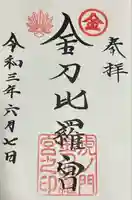 奉拝
金
金刀比羅宮
虎ノ門
宮之印
令和三年六月七日